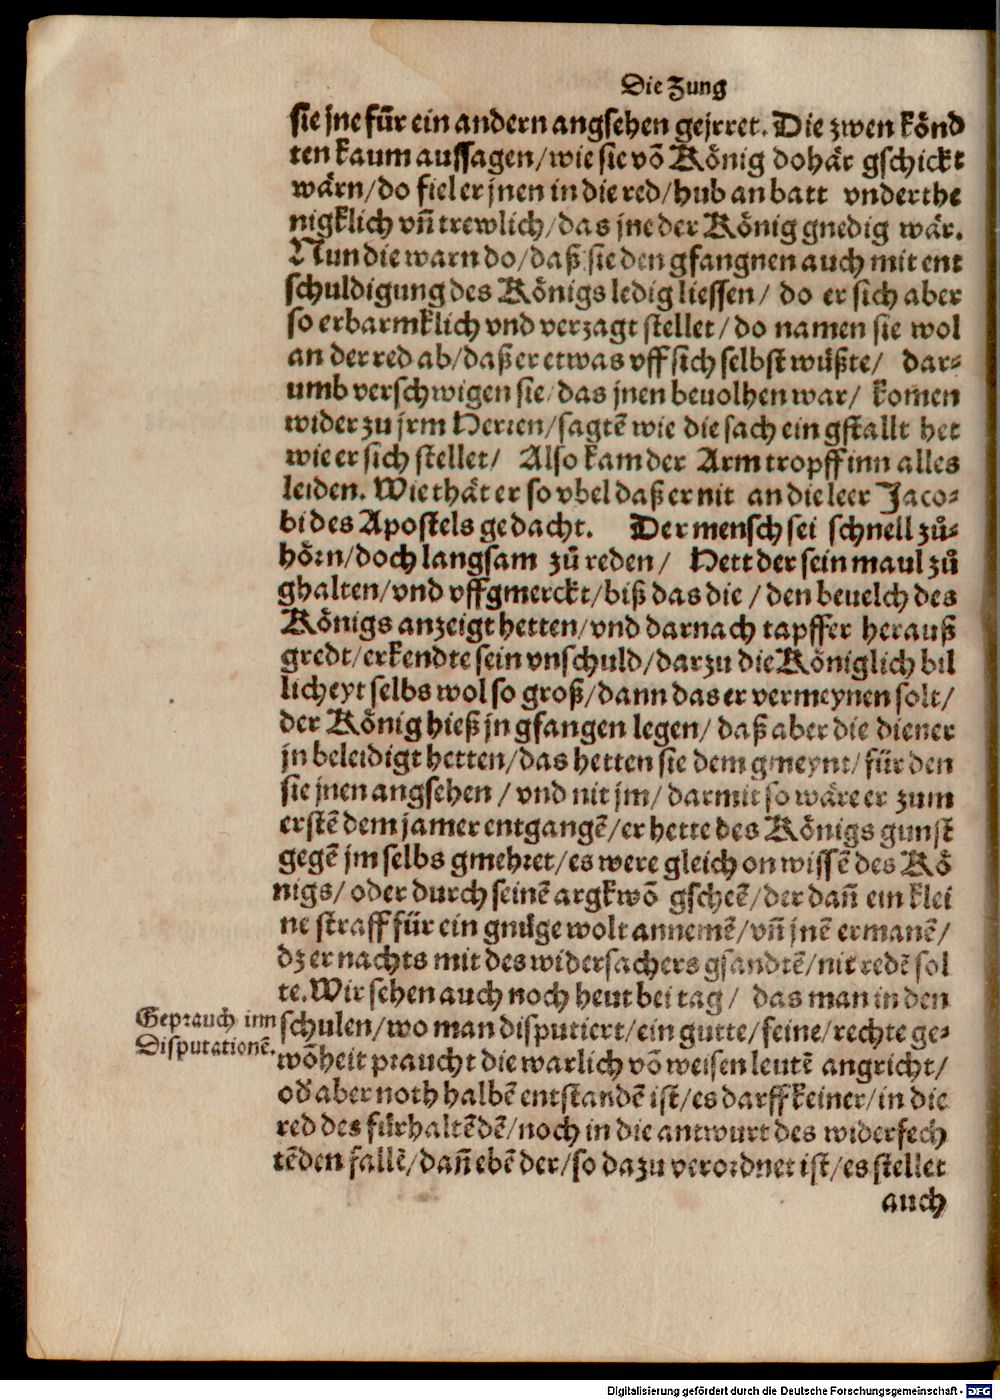 Die Zung
sie jne für ein andern angsehen gejrret. Die zwen könd
ten kaum aussagen/wie sie võ König dohär gschickt
wärn/do fiel er jnen in die red/hub an batt vnderthe
nigklich vñ trewlich/das jne der König gnedig wär.
Nun die warn do/daß sie den gfangnen auch mit ent
schuldigung des Königs ledig liessen/ do er sich aber
so erbarmklich vnd verzagt stellet/do namen sie wol
an der red ab/daß er etwas vff sich selbst wüßte/ dar⸗
umb verschwigen sie/das jnen beuolhen war/ komen
wider zu jrm Herren/sagtẽ wie die sach ein gstallt het
wie er sich stellet/ Also kam der Arm tropff inn alles
leiden. Wie thät er so vbel daß er nit an die leer Jaco⸗
bi des Apostels gedacht. Der mensch sei schnell zů⸗
hörn/doch langsam zů reden/ Hett der sein maul zů
ghalten/vnd vffgmerckt/biß das die/den beuelch des
Königs anzeigt hetten/vnd darnach tapffer herauß
gredt/erkendte sein vnschuld/darzu die Königlich bil
licheyt selbs wol so groß/dann das er vermeynen solt/
der König hieß jn gfangen legen/ daß aber die diener
jn beleidigt hetten/das hetten sie dem gmeynt/für den
sie jnen angsehen/vnd nit jm/darmit so wäre er zum
erstẽ dem jamer entgangẽ/er hette des Königs gunst
gegẽ jm selbs gmehret/es were gleich on wissẽ des Kö
nigs/oder durch seinẽ argkwõ gscheẽ/der dañ ein klei
ne straff für ein gnüge wolt annemẽ/vñ jnẽ ermanẽ/
dz er nachts mit des widersachers gsandtẽ/nit redẽ sol
te. Wir sehen auch noch heut bei tag/ das man in den
Geprauch inn
Disputationẽ.
schulen/wo man disputiert/ein gutte/feine/rechte ge⸗
wõheit praucht die warlich võ weisen leutẽ angricht/
od̃ aber noth halbẽ entstandẽ ist/es darff keiner/in die
red des fürhaltẽdẽ/noch in die antwurt des widerfech
tẽden fallẽ/dañ ebẽ der/so dazu verordnet ist/es stellet
auch
Digitalisierung gefördert durch die Deutsche Forschungsgemeinschaft - DFG